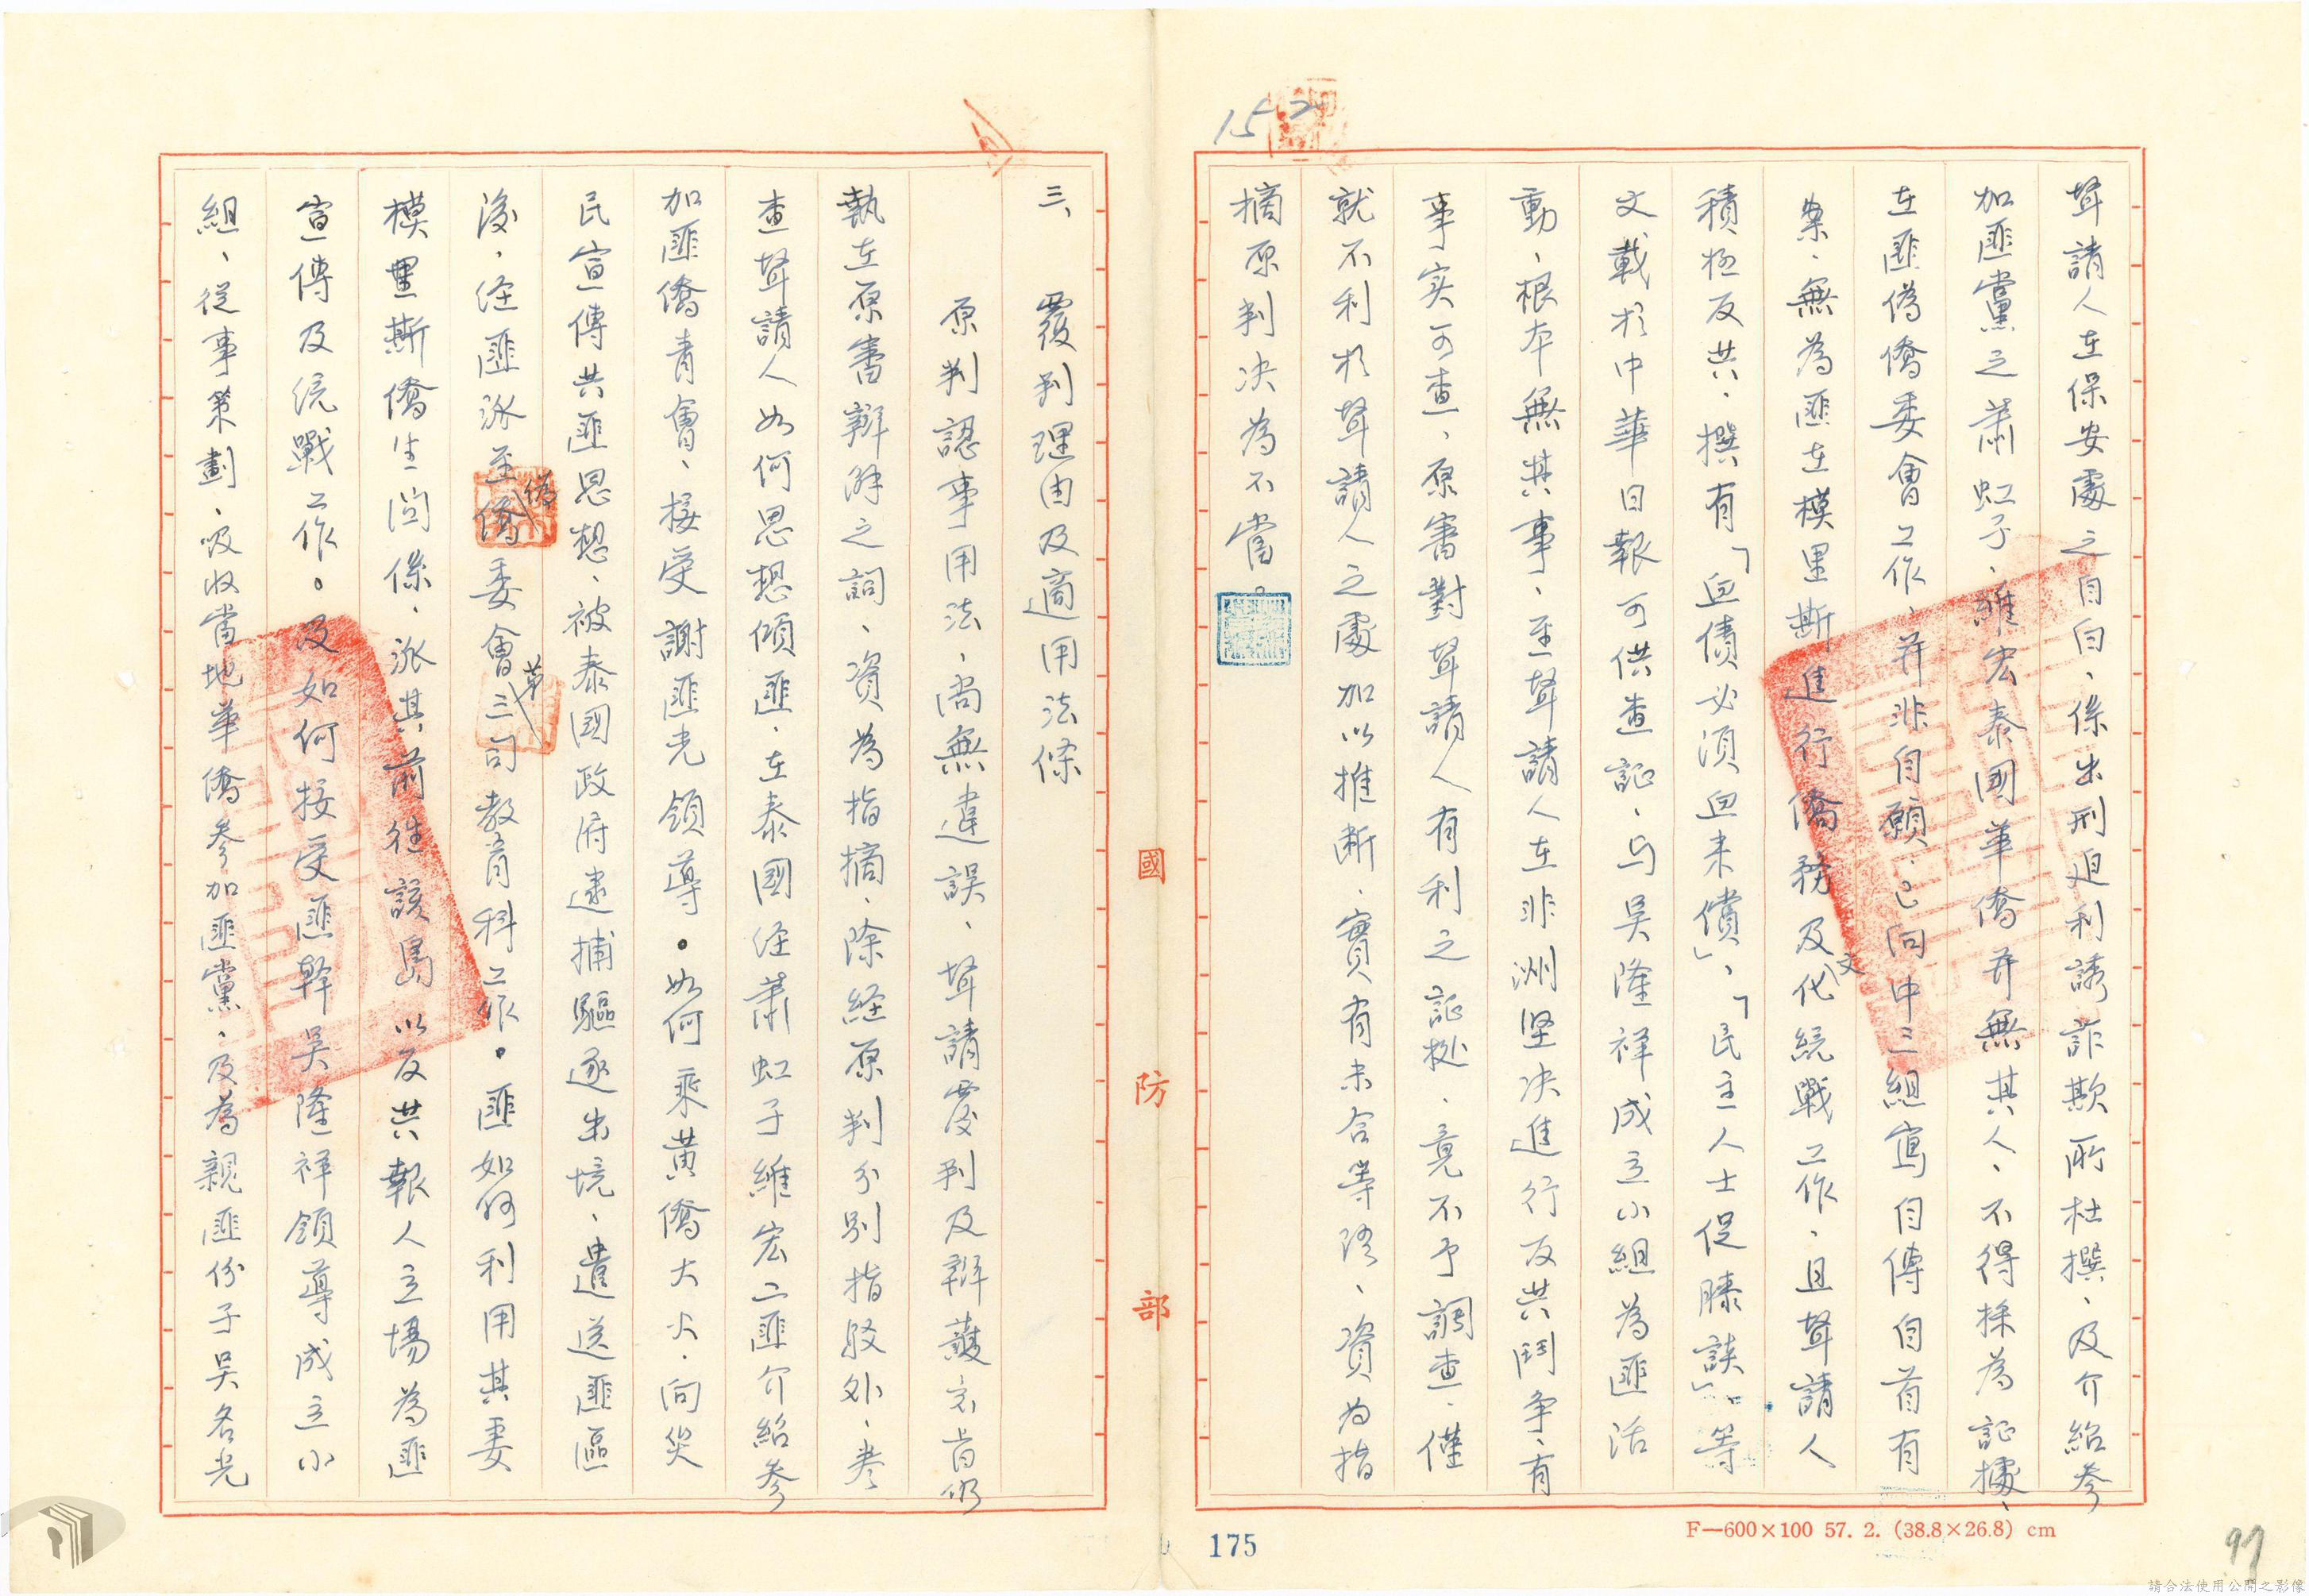 聲請人在保安處之自白、係出刑迫利誘詐欺所杜撰、及介紹參
加匪黨之蕭虹子、維宏泰國華僑并無其人、不得採為証據、
在匪偽僑委會工作、并非自願、已向中三組寫自傳自首有
案、無為匪在模里斯進行僑務及文化統戰工作、且聲請人
積極反共、撰有「血債必須血來償」、「民主人士促膝談」等
文載於中華日報可供查証、与吴隆祥成立小組為匪活
動、根本無其事、至聲請人在非洲坚决進行反共鬥争、有
事实可查、原審對聲請人有利之証挺、竟不予調查、僅
就不利於聲請人之處加以推断、實有未合等語、資為指
摘原判决為不當。
三、覆判理由及適用法條
原判認事用法、尚無違誤、聲請覆判及辯護意旨仍
執在原審辯解之詞、資為指摘、除経原判分別指駁外、卷
查聲請人如何思想傾匪、在泰國経蕭虹子維宏二匪介紹參
加匪僑青會、接受謝匪光領導。如何乘黄僑大火、向災
民宣傳共匪思想、被泰國政府逮捕驅逐出境、遣送匪區
後、経匪派至偽僑委會第三司教育科工作。匪如何利用其妻
模里斯僑生関係、派其前往該島以反共報人立場為匪
宣傳及統戰工作。及如何接受匪幹吴隆祥領導成立小
組、從事策劃、吸收當地華僑參加匪黨、及為親匪份子吴名光
國防部
152
175
F—600×100 57. 2. (38.8×26.8) cm
97
請合法使用公開之影像